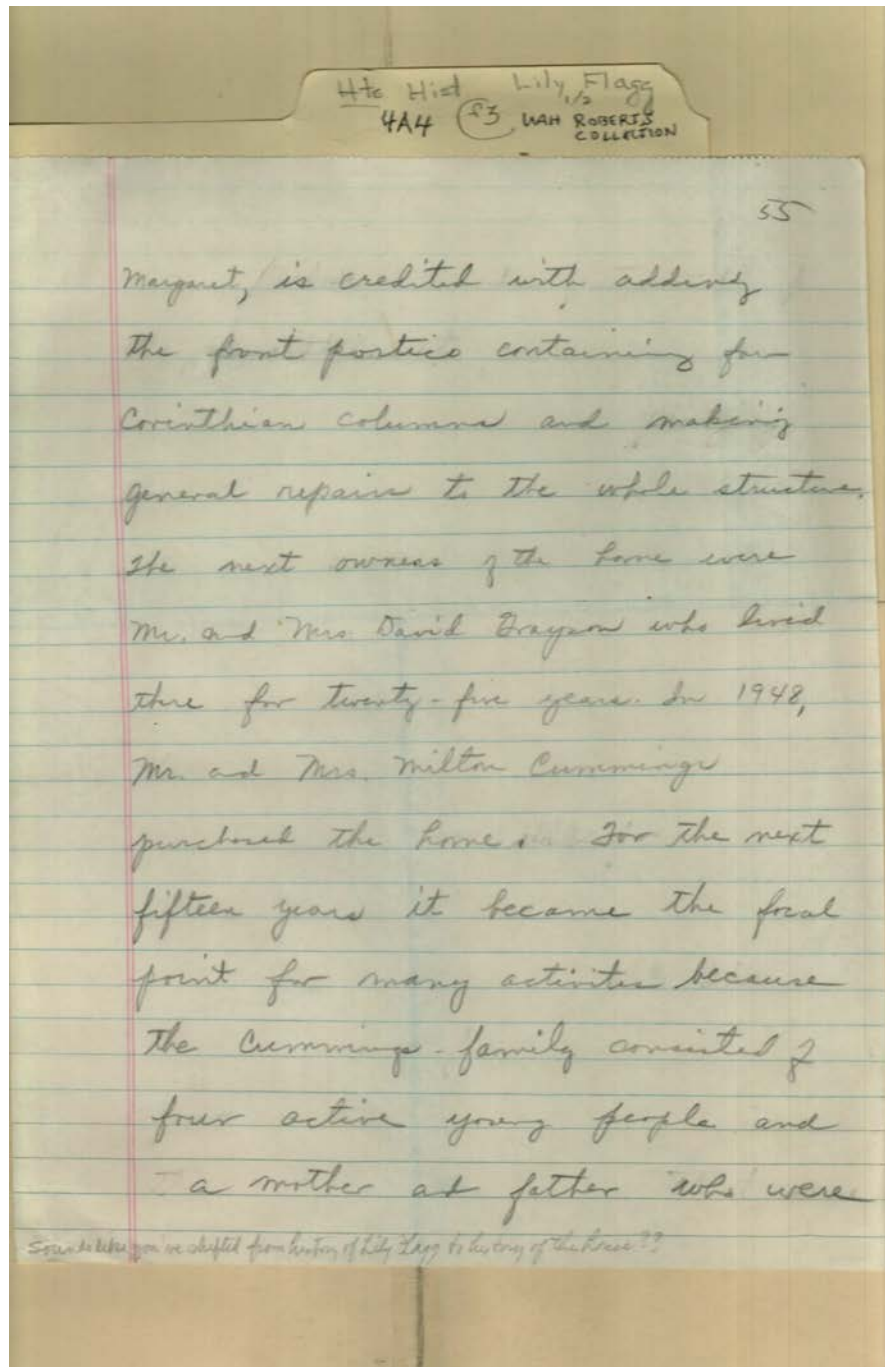 Hts Hist Lily Flagg
1/2
4A4 f3 UAH ROBERTS
COLLECTION
55
Margaret, is credited with adding
the front portico containing four
Corinthian columns and making
general repairs to the whole structure.
The next owners of the home were
Mr. and Mrs David Grayson who lived
there for twenty-five years. In 1948,
Mr. and Mrs. Milton Cummings
purchased the home. For the next
fifteen years it became the focal
point for many activites because
the Cummings family consisted of
four active young people and
a mother and father who were
Sounds like you've shifted from history of Lily Flagg to history of the house??